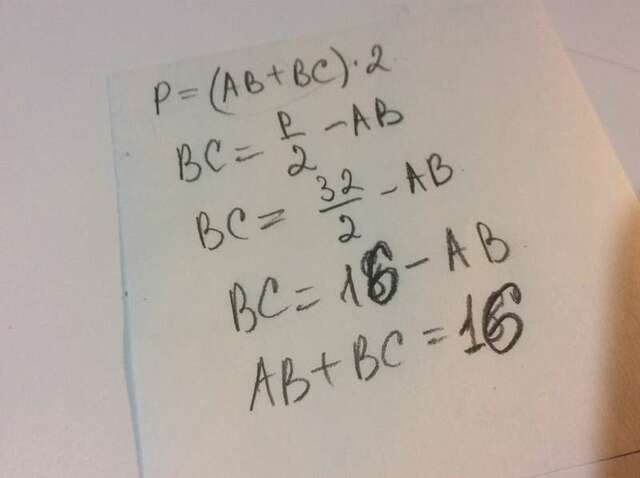 P = (AB + BC) · 2
BC = P/2 - AB
BC = 32/2 - AB
BC = 16 - AB
AB + BC = 16